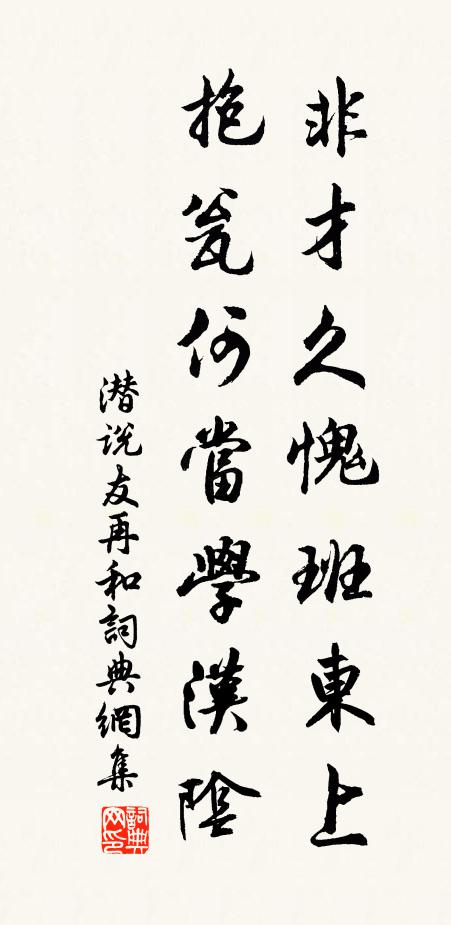 非才久愧班東上
抱瓮何當學漢陰
潛説友再和詞典網集
詞典网印